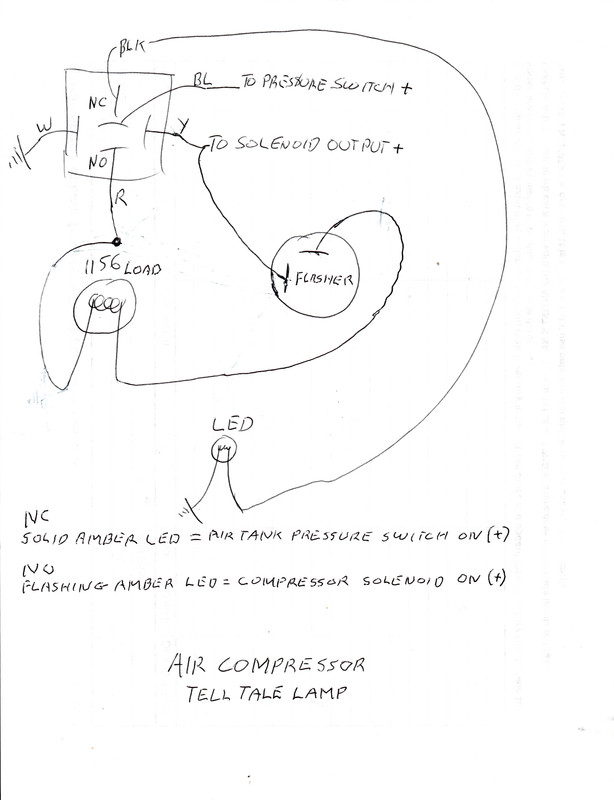 BLK
BL TO PRESSURE SWITCH +
NC
W
Y
TO SOLENOID OUTPUT +
NO
R
1156 LOAD
FLASHER
LED
NC
SOLID AMBER LED = AIR TANK PRESSURE SWITCH ON (+)
NO
FLASHING AMBER LED = COMPRESSOR SOLENOID ON (+)
AIR COMPRESSOR
TELL TALE LAMP